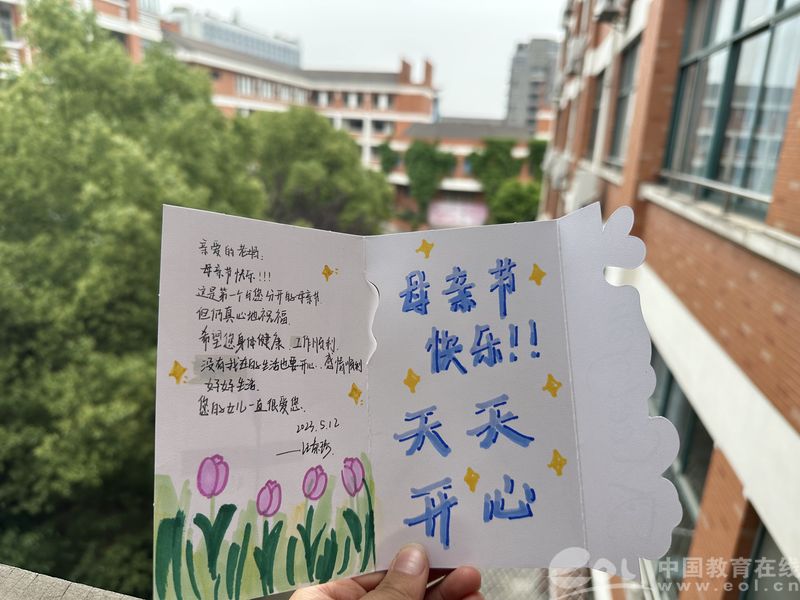 亲爱的老妈:
母亲节快乐!!!
这是第一个与您分开的母亲节
但仍真心地祝福
希望您身体健康 工作顺利
没有我在的生活也要开心、感情顺利
好好生活
您的女儿一直很爱您.
2023.5.12
母亲节
快乐!!
天天
开心
eol 中国教育在线
www.eol.cn